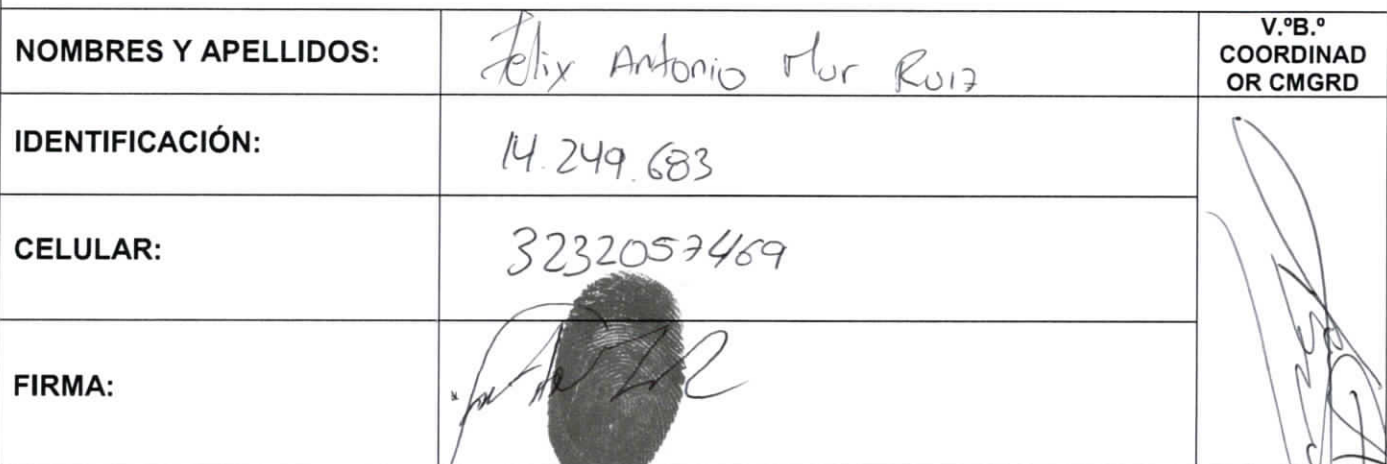 NOMBRES Y APELLIDOS: Felix Antonio Mur Ruiz
V.ºB.º
COORDINAD
OR CMGRD
IDENTIFICACIÓN: 14.249.683
CELULAR: 3232057469
FIRMA: